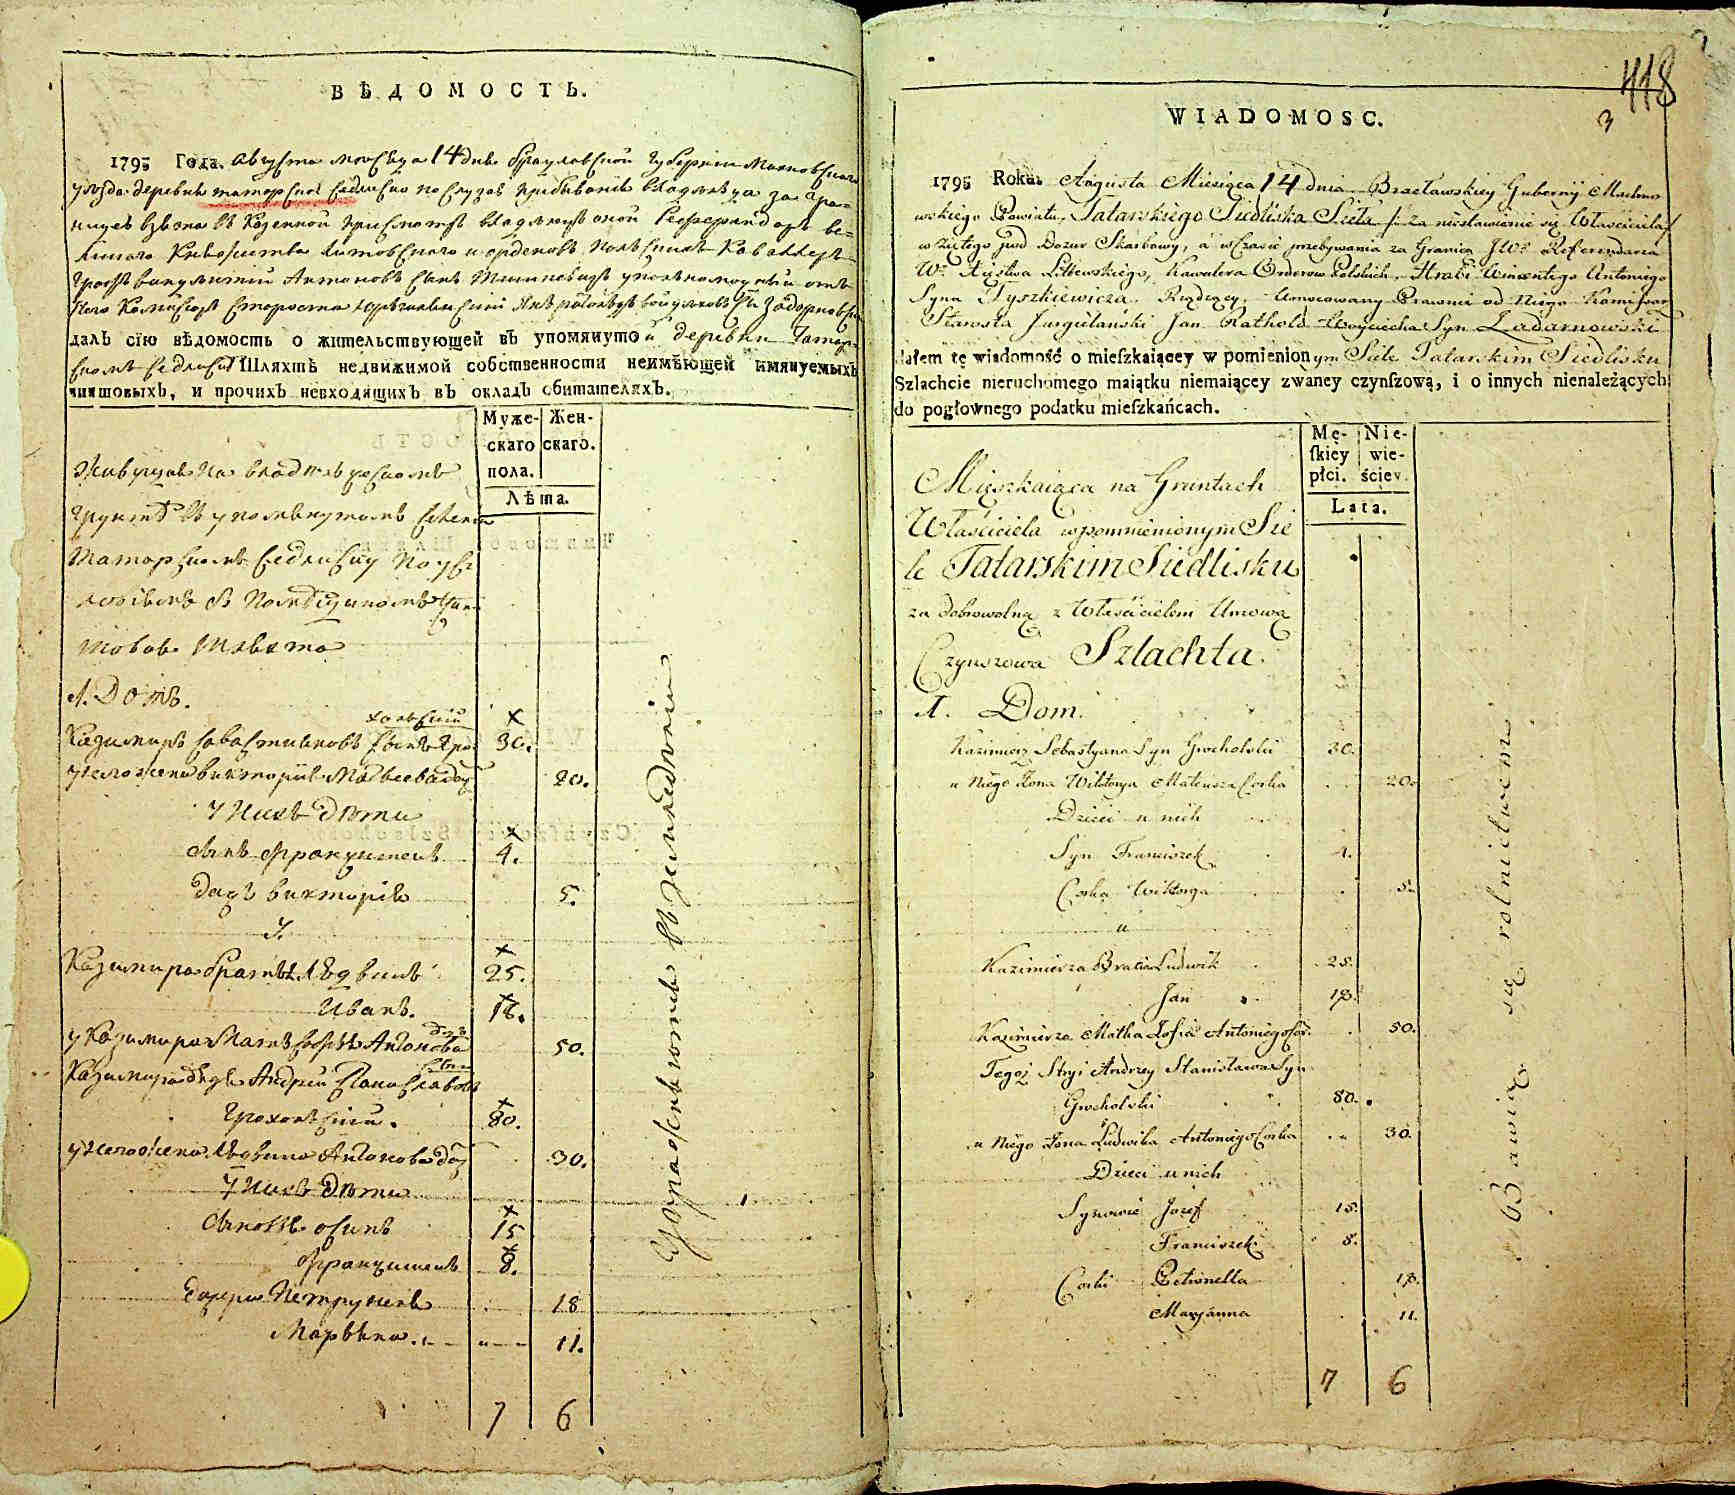 ВѢДОМОСТЬ.
1795 Года. Августа месяца 14 дня Брацлавской Губернии Махновскаго
уезда деревне татарской
Антоновъ сынъ Тишкевичъ
далъ сїю вѣдомость о жительствующей въ упомянутой деревни Татар-
Шляхтѣ недвижимой собственности неимѣющей имянуемыхъ
чиншовыхъ, и прочихъ невходящихъ въ окладъ обитателяхъ.
Муже-
скаго
пола.
Жен-
скаго.
Лѣта.
Живущая на
грунтѣ въ упомянутомъ
Татарскомъ
Шляхта
1. Домъ.
Казимиръ Савастияновъ сынъ Гро-
хольский 30.
у него жена Виктория Матвеева доч 20.
У нихъ Дѣти
сынъ Францишекъ 4.
Дочь Виктория 5.
У.
Казимира братья Людвикъ 25.
Иванъ. 18.
у Казимира Мать Антонова дочь 50.
Казимира дядя Андрей Станиславовъ сынъ
Грохольский. 80.
у него жена Людвика Антонова доч 30.
У нихъ Дѣти
сыновья Осипъ 15
Францишекъ 8.
Дочери Петрунеля 18
Марьяна. 11.
7 6
Упражняются въ земледелии
418
3
WIADOMOSC.
1795 Roku. Augusta Miesiąca 14 Dnia Bracławskiey Gubernij Machno-
wskiego Powiatu, Tatarskiego Siedliska Siela za niestawienie się Właściciela
wziętego pod Dozor Skarbowy, a w Czasie przebywania za Granicą JWo Referendarza
Wo Xięstwa Littewskiego, Kawalera Orderow Polskich, Hrabi Wincentego Antoniego
Syna Tyszkiewicza, Rządzący, Umocowany Prawnie od Niego Kommissarz
Starosta Jurgielański Jan Rathold Woyciecha Syn Zadarnowski
dałem tę wiadomość o mieſzkaiącey w pomienionym Siele Tatarskim Siedlisku
Szlachcie nieruchomego maiątku niemaiącey zwaney czynſzową, i o innych nienależących
do pogłownego podatku mieſzkańcach.
Mę-
ſkiey
płci.
Nie-
wie-
ściey.
Lata.
Mieszkaiąca na Gruntach
Właściciela wpomnienionym Sie
le Tatarskim Siedlisku
za dobrowolną z Właścicielem Umową
Czynszowa Szlachta.
1. Dom.
Kazimierz Sebastyana Syn Grocholski 30.
u Niego Żona Wiktorya Mateusza Corka 20.
Dzieci u nich
Syn Franciszek 4.
Corka Wiktorya 5.
u
Kazimierza Bracia Ludwik 25.
Jan 18.
Kazimierza Matka Zofia Antoniego Cor. 50.
Tegoż Stryi Andrzey Stanisława Syn
Grocholski 80.
u Niego Żona Ludwika Antoniego Corka 30.
Dzieci u nich
Synowie Jozef 15.
Franciszek 8.
Corki Petronella 18.
Maryanna 11.
7 6
Bawią się rolnictwem